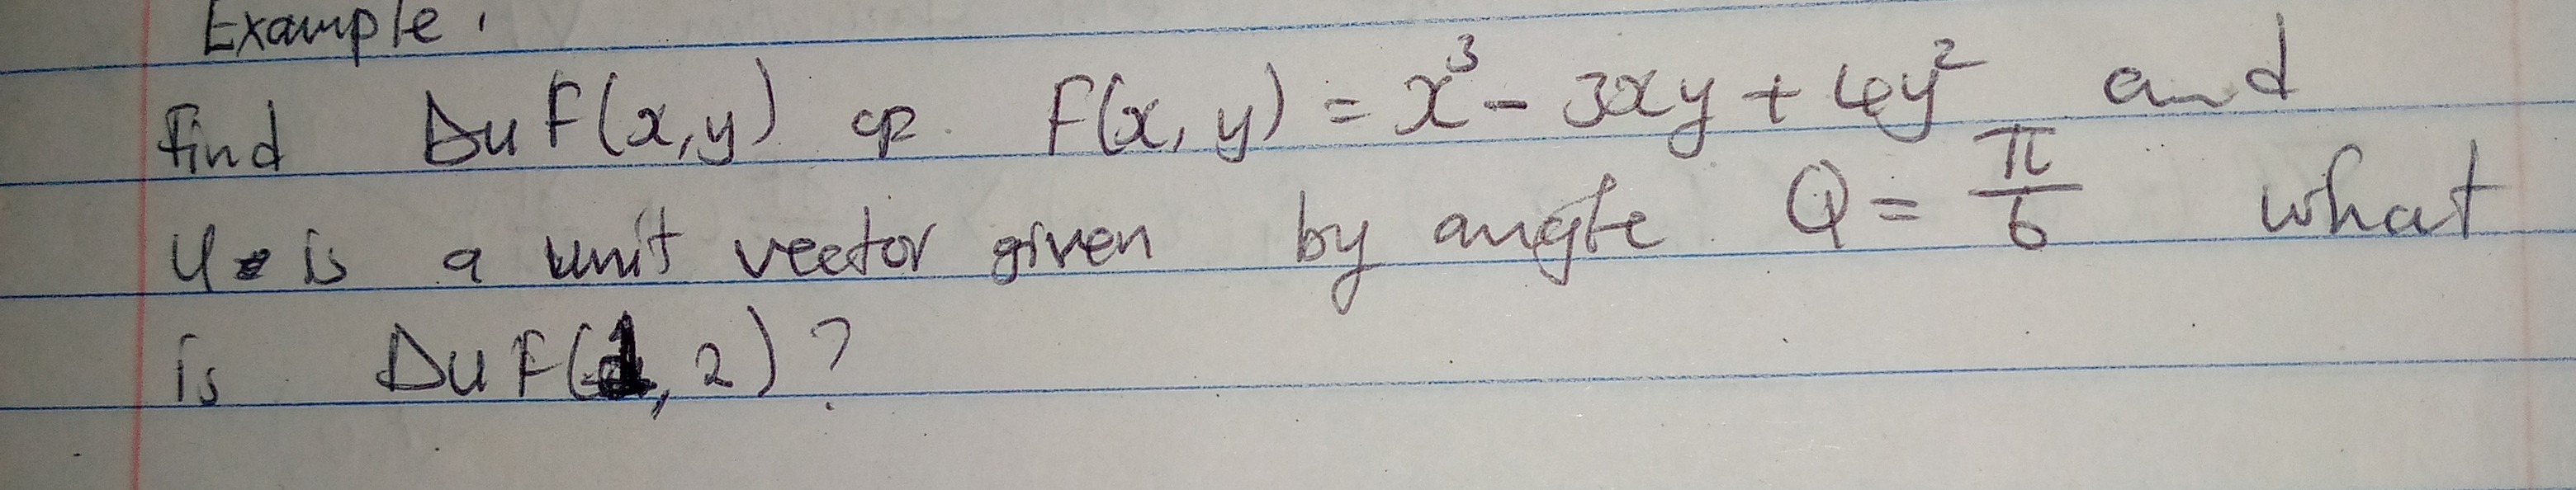 Example.
find Duf(x,y) if f(x, y) = x³ - 3xy + 4y² and
u is a unit vector given by angle Q = π/6 what
is Duf(1, 2)?